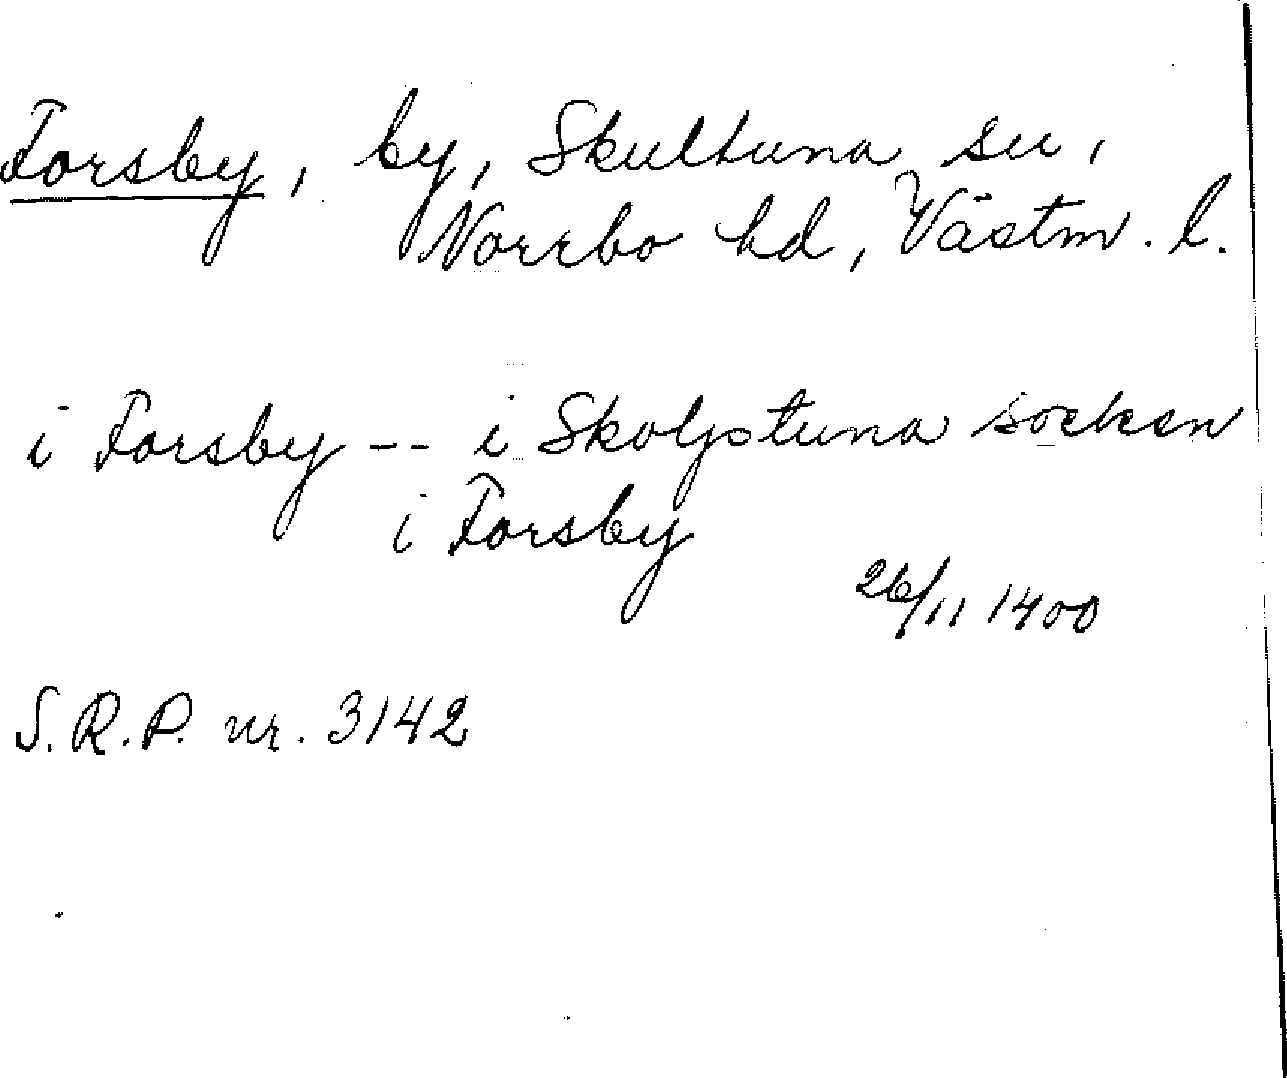 Forsby, by, Skultuna sn,
Norrbo hd, Västm. l.
i Forsby -- i Skolpstuna socken
i Forsby
26/11 1400
S.R.P. nr. 3142